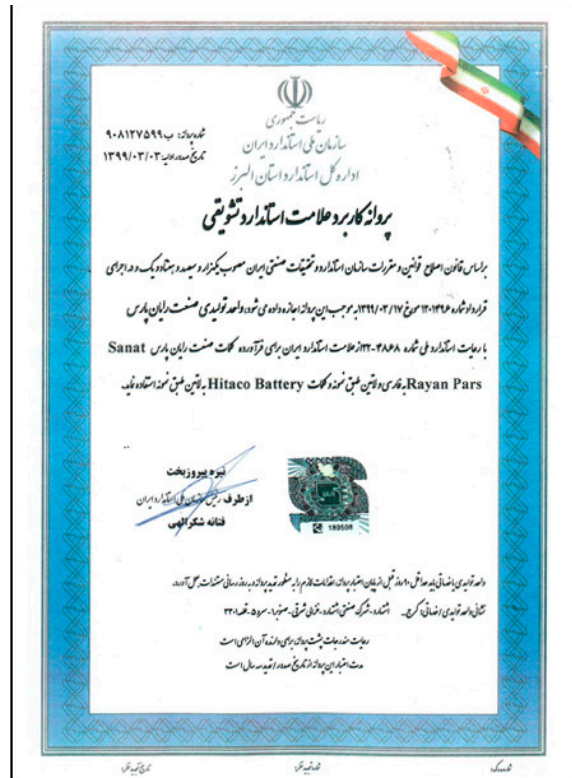 ریاست جمهوری
سازمان ملی استاندارد ایران
اداره کل استاندارد استان البرز
شماره پروانه: ب ۹۰۸۱۲۷۵۹۹
تاریخ صدور اولیه: ۱۳۹۹/۰۳/۰۳
پروانه کاربرد علامت استاندارد تشویقی
براساس قانون اصلاح قوانین و مقررات سازمان استاندارد و تحقیقات صنعتی ایران مصوب یکهزار و سیصد و هفتاد و یک و در اجرای
قرارداد شماره ۱۲۰۱۴۹۶ مورخ ۱۳۹۹/۰۳/۱۷ به موجب این پروانه اجازه داده می شود: واحد تولیدی صنعت رایان پارس
با رعایت استاندارد ملی شماره ۴۸۶۸-۲۲ از علامت استاندارد ایران برای فرآورده کلمات صنعت رایان پارس Sanat
Rayan Pars به فارسی و لاتین طبق نمونه و کلمات Hitaco Battery به لاتین طبق نمونه استفاده نماید.
نیره پیروزبخت
از طرف رئیس سازمان ملی استاندارد ایران
فتانه شکرالهی
189598
واحد تولیدی یا خدماتی باید حداقل ۹۰ روز قبل از پایان اعتبار پروانه، اقدامات لازم را به منظور تمدید پروانه و به روز رسانی مستندات به عمل آورد.
نشانی واحد تولیدی / خدماتی: کرج - اشتهارد - شهرک صنعتی اشتهارد - غزالی شرقی - صنوبر۱ - سرو ۵ - قطعه ۲۳۰۱
رعایت مندرجات پشت پروانه برای دارنده آن الزامی است
مدت اعتبار این پروانه از تاریخ صدور / تمدید سه سال است
شماره تمدید مکرر:
تاریخ تمدید مکرر: